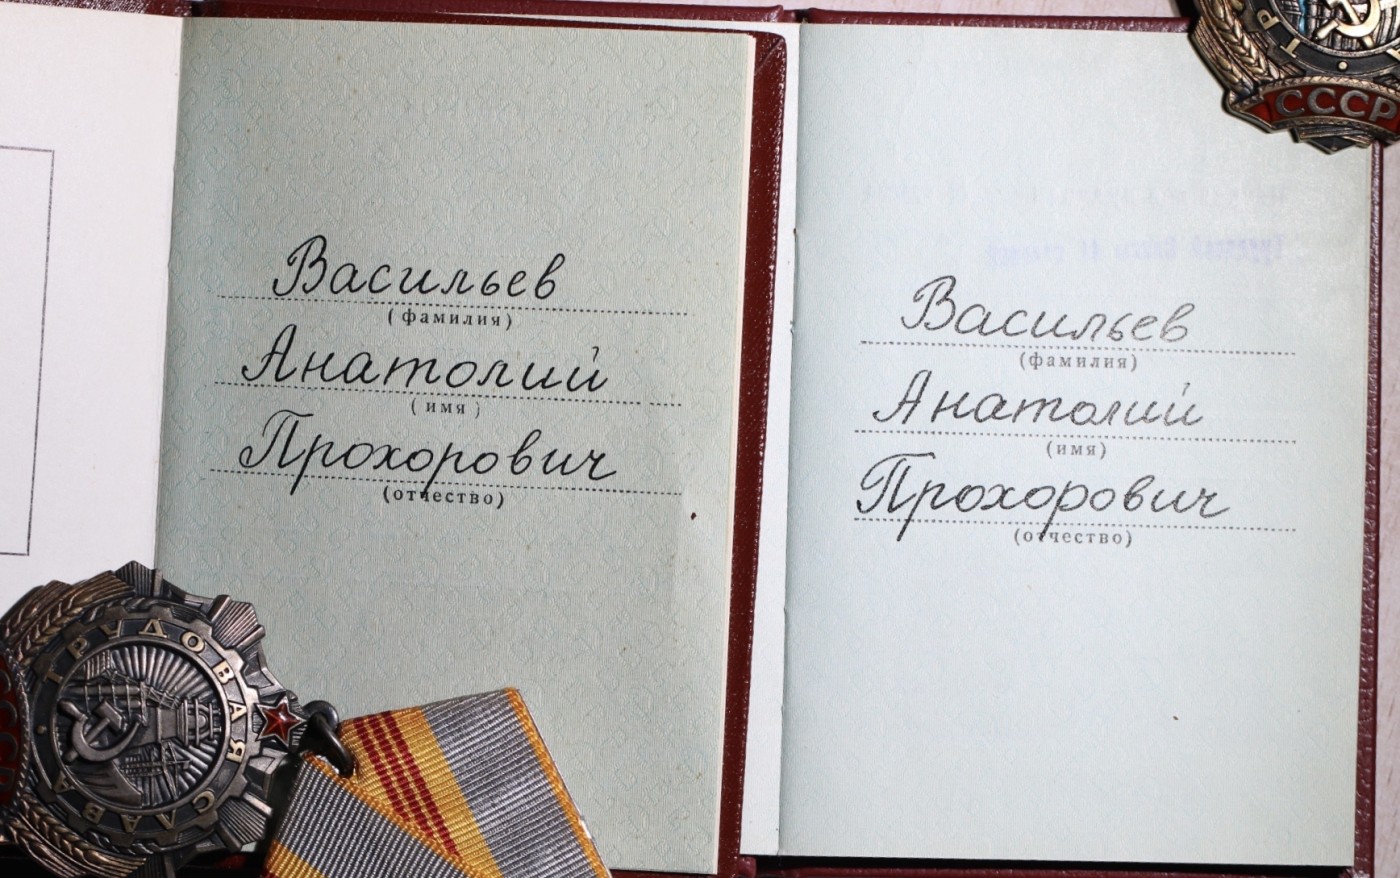 Васильев
(фамилия)
Анатолий
(имя)
Прохорович
(отчество)
Васильев
(фамилия)
Анатолий
(имя)
Прохорович
(отчество)
СССР
ТРУДОВАЯ СЛАВА